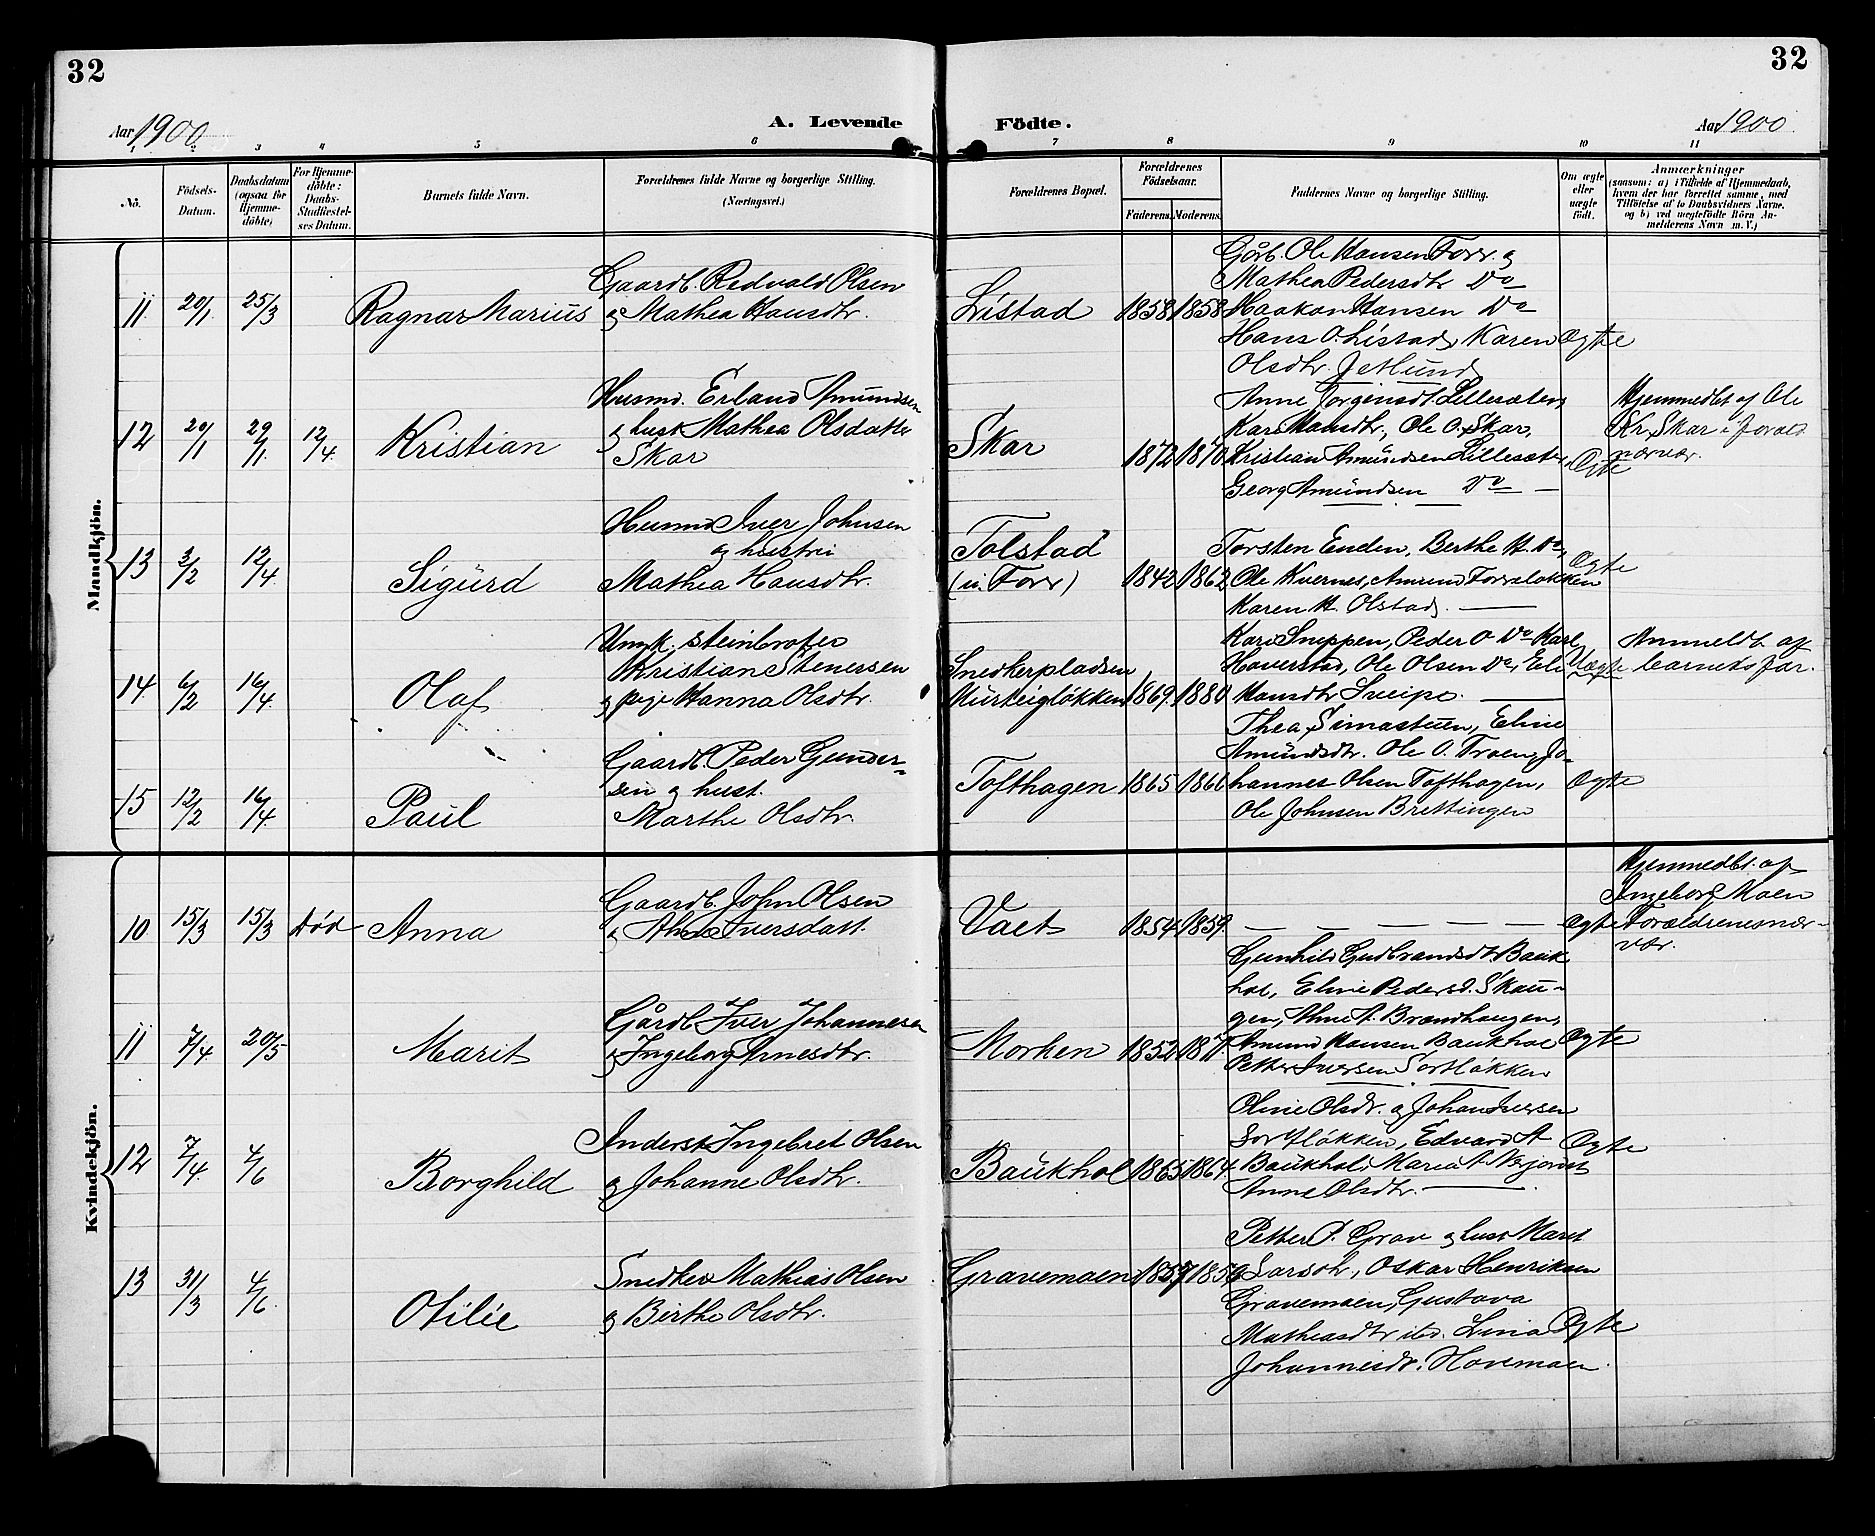 32
32
Aar 1900
A. Levende Födte.
Aar 1900.
1 2 3 4 5 6 7 8 9 10 11
No.
Födsels-Datum.
Daabsdatum (ogsaa for Hjemmedöbte)
For Hjemmedöbte: Daabs-Stadfæstelses Datum.
Barnets fulde Navn.
Forældrenes fulde Navne og borgerlige Stilling. (Næringsvei.)
Forældrenes Bopæl.
Forældrenes Födselsaar.
Faderens. Moderens.
Faddernes Navne og borgerlige Stilling.
Om ægte eller uægte født.
Anmærkninger (saasom: a) i Tilfælde af Hjemmedaab, hvem der har forrettet samme, med Tilføielse af to Daabsvidners Navne, og b) ved uægtefødte Börn Anmelderens Navn m. V.)
Mandkjön.
11 20/1 25/3 Ragnar Marius
Gaardb. Redvald Olsen
og Mathea Hansdtr.
Listad 1858 1858
Gårb. Ole Hansen Forr og
Mathea Pedersdtr Do
Haakon Hansen Do
Hans O. Listad, Karen
Olsdtr. Jetlund
Ægte
12 20/1 29/1 12/4 Kristian
Husmd. Erland Amundsen
og hust Mathea Olsdatter
Skar
Skar 1872 1870
Anne Jorgensdt. Lillesæter,
Kari Hansdtr, Ole O. Skar,
Kristian Amundsen Lillesæter,
Georg Amundsen Do
Ægte
Hjemmedbt af Ole
Kr. Skar i foræld
nærvær.
13 3/2 12/4 Sigurd
Husmd Iver Johnsen
og hustru
Mathea Hansdtr.
Tolstad
(u. Forr) 1842 1862
Torsten Enden, Berthe H. Do,
Ole Kvernes, Amund Forrsløkken
Karen H. Olstad.
Ægte
14 6/2 16/4 Olaf
Ungk. steinbryter
Kristian Stenersen
og pige Hanna Olsdtr.
Snedkerpladsen
1869. 1880
Kari Snippen, Peder O Do Karl
Haverstad, Ole Olsen Do, Eli
Hansdtr Sveipe.
Uægte
Anmeldt af
barnets far.
15 12/2 16/4 Paul
Gaardb. Peder Gunder-
sen og hust.
Marthe Olsdtr.
Tofthagen 1865 1866
Thea Simastuen, Eline
Amundsdtr. Ole O. Troen, Jo-
hannes Olsen Tofthagen,
Ole Johnsen Brettingen
Ægte
Kvindekjön.
10 15/3 15/3 død Anna
Gaardb. John Olsen
og Ahne Iversdatt.
Vaet 1854 1859
Ægte
Hjemmedbt. af
Ingeborg Moen
i Forældrenes nær-
vær.
11 7/4 20/5 Marit
Gårdb. Iver Johannesen
og Ingeborg Arnesdtr.
Morken 1852 1871
Gunhild Gudbrandsdt. Bauk
hol, Eline Pedersd. Skau-
gen, Ahne A. Brandhaugen,
Amund Hansen Baukhol
Petter Iversen Sortløkken
Ægte
12 7/4. 4/6 Borghild
Inderst Ingebret Olsen
og Johanne Olsdtr.
Baukhol 1865 1864
Oline Olsdr. og Johan Iversen
Sortløkken, Edvard A
Baukhol, Maria A.
Anne Olsdtr.
Ægte
13 31/3 4/6. Otilie
Snedker Mathias Olsen
og Birthe Olsdtr.
Gravemoen 1857 1859
Petter P. Grav og hust Maret
Larsdr, Oskar Henriksen
Gravemoen, Gustava
Matheasdtr ibd. Lina
Johannesdr. Hovemoen.
Ægte